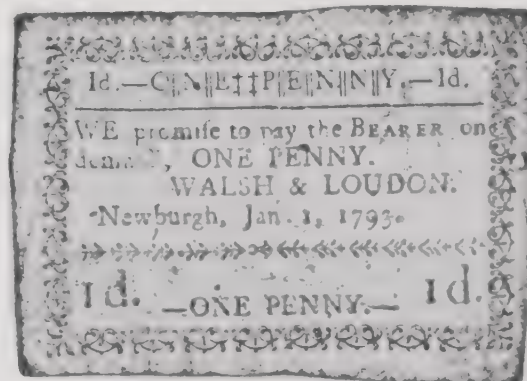 1d.—O‖N‖E‡‡P‖E‖N‖N‖Y.—1d.
WE promiſe to pay the BEARER on
demand, ONE PENNY.
WALSH & LOUDON.
Newburgh, Jan. 1, 1793.
1d. —ONE PENNY.— 1d.